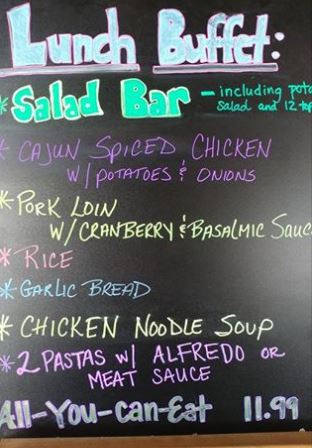 Lunch Buffet:
* Salad Bar - including pota
salad and 12 top
* CAJUN SPICED CHICKEN
W/POTATOES & ONIONS
* PORK LOIN
W/CRANBERRY & BASALMIC SAUC
* RICE
* GARLIC BREAD
* CHICKEN NOODLE SOUP
* 2 PASTAS W/ ALFREDO OR
MEAT SAUCE
All-You-can-Eat 11.99